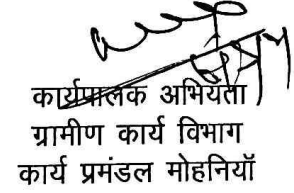 कार्यपालक अभियंता
ग्रामीण कार्य विभाग
कार्य प्रमंडल मोहनियॉ